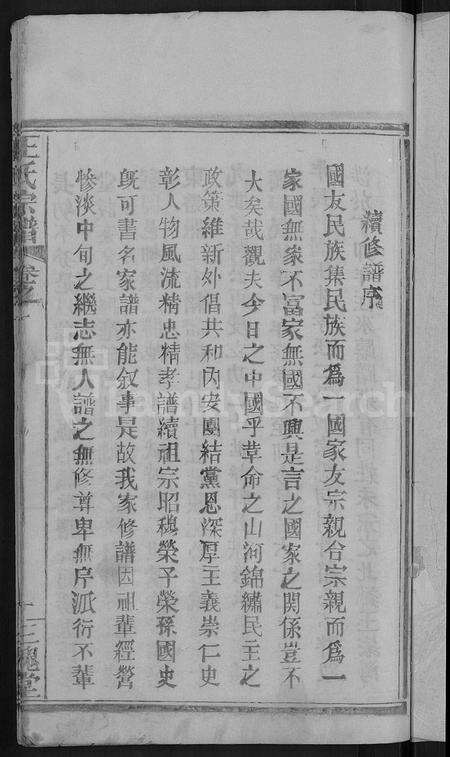 續修譜序
國友民族集民族而為一國家友宗親合宗親而為一
家國無家不富家無國不興是言之國家之關係豈不
大矣哉觀夫今日之中國乎革命之山河錦繡民主之
政策維新外倡共和內安團結黨恩深厚主義崇仁史
彰人物風流精忠精孝譜續祖宗昭穆榮子榮孫國史
既可書名家譜亦能叙事是故我家修譜因祖輩經營
慘淡中旬之繼志無人譜之無修尊卑無序派衍不輩
王氏宗譜
卷之一
三槐堂
FamilySearch